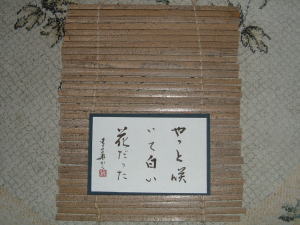 やっと咲
いて白い
花だった